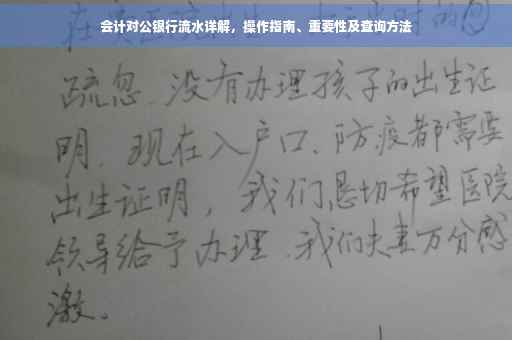 会计对公银行流水详解，操作指南、重要性及查询方法
疏忽、没有办理孩子的出生证
明、现在入户口、防疫都需要
出生证明，我们恳切希望医院
领导给予办理、我们夫妻万分感
激。